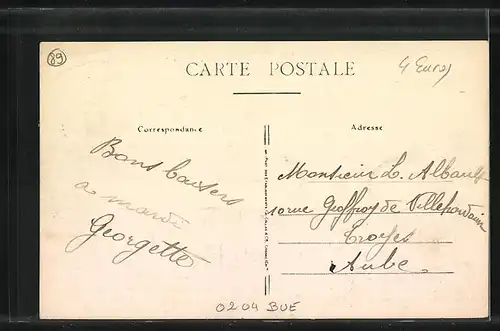 89
CARTE POSTALE
4 Euros
Correspondance
Adresse
Bons baisers
a mardi
Georgette
Monsieur L. Albault
10 rue Geoffroy de Villehardouin
Troyes
Aube.
0204 BUE